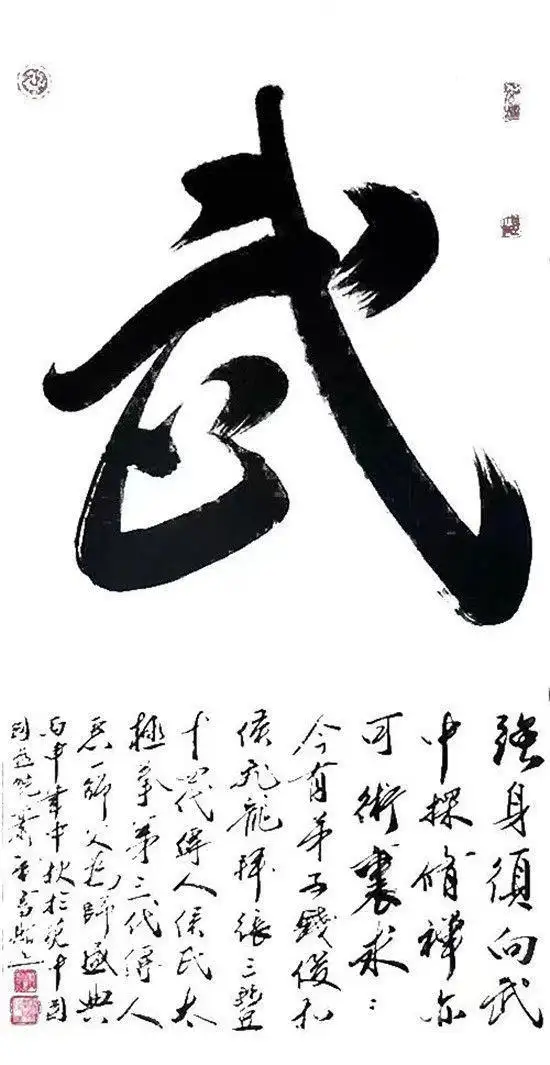 武
强身須向武
中探修禪亦
可術裏求
今有弟子錢俊和
侯飛龍拜張三豐
十四代傳人侯氏太
極拳第三代傳人
一師父為師盛典
丙申年中秋於